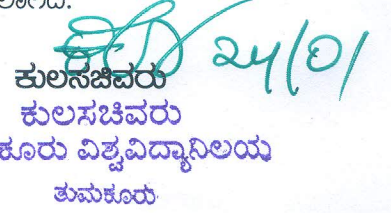 24/01
ಕುಲಸಚಿವರು
ಕುಲಸಚಿವರು
ವಿಶ್ವವಿದ್ಯಾನಿಲಯ
ತುಮಕೂರು